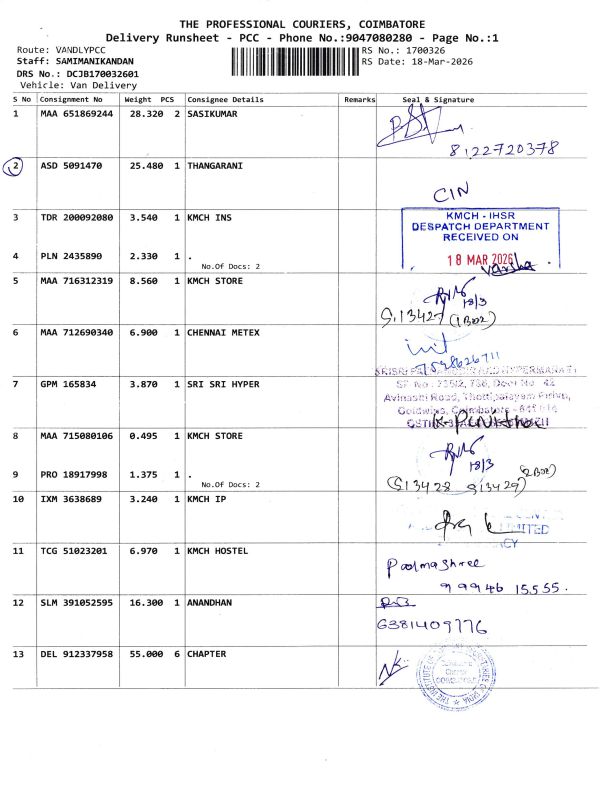 THE PROFESSIONAL COURIERS, COIMBATORE
Delivery Runsheet - PCC - Phone No.:9047080280 - Page No.:1
Route: VANDLYPCC
RS No.: 1700326
Staff: SAMIMANIKANDAN
RS Date: 18-Mar-2026
DRS No.: DCJB170032601
Vehicle: Van Delivery
S No Consignment No Weight PCS Consignee Details Remarks Seal & Signature
1 MAA 651869244 28.320 2 SASIKUMAR
8122720378
2 ASD 5091470 25.480 1 THANGARANI
CIN
3 TDR 200092080 3.540 1 KMCH INS
KMCH - IHSR
DESPATCH DEPARTMENT
RECEIVED ON
4 PLN 2435890 2.330 1 .
No.Of Docs: 2
18 MAR 2026
Varsha
5 MAA 716312319 8.560 1 KMCH STORE
18/3
S.13427 (1 Box)
6 MAA 712690340 6.900 1 CHENNAI METEX
7548626711
7 GPM 165834 3.870 1 SRI SRI HYPER
Avinashi Road, Thottipalayam Pirivu,
Goldwins, Coimbatore - 641 014
8 MAA 715080106 0.495 1 KMCH STORE
18/3
9 PRO 18917998 1.375 1 .
No.Of Docs: 2
(S13428 S13429) (2 Box)
10 IXM 3638689 3.240 1 KMCH IP
LIMITED
11 TCG 51023201 6.970 1 KMCH HOSTEL
Poolmashree
99946 15555.
12 SLM 391052595 16.300 1 ANANDHAN
6381409776
13 DEL 912337958 55.000 6 CHAPTER